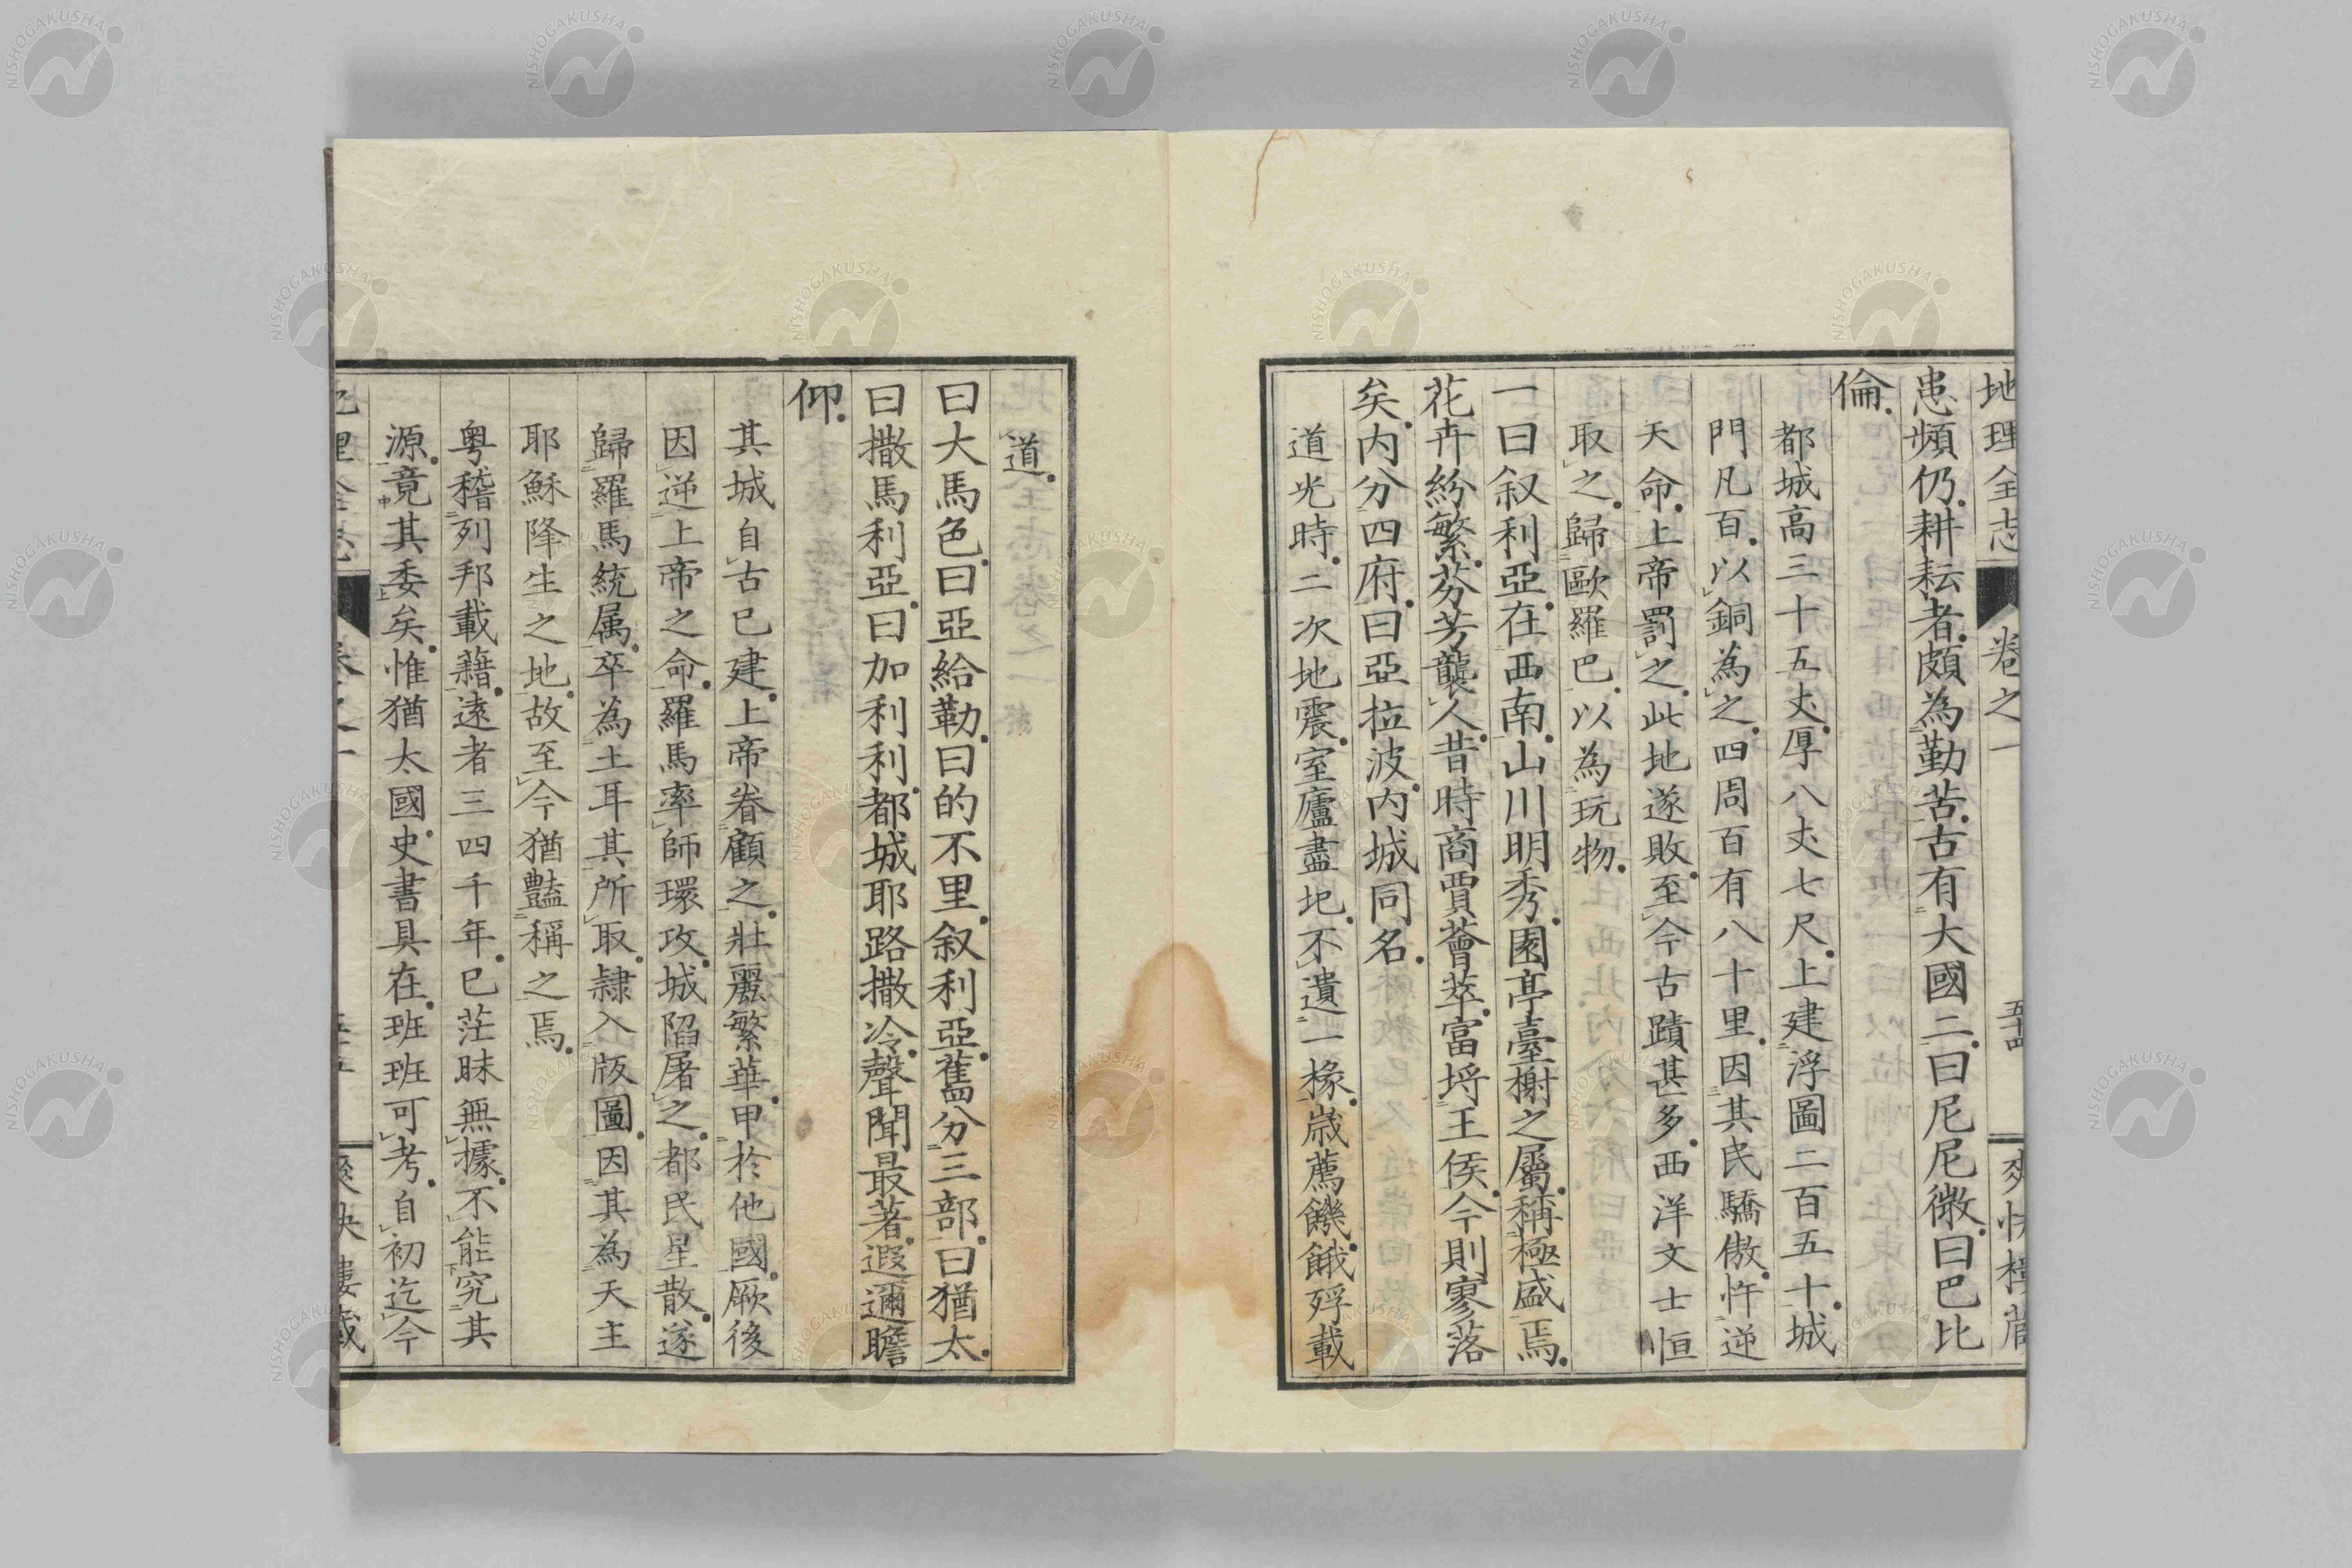 地理全志 卷之一 五十四 爽快樓藏
患頻仍。耕耘者。頗為勤苦。古有大國二。曰尼尼微。曰巴比
倫。
都城高三十五丈。厚八丈七尺。上建浮圖二百五十。城
門凡百。以銅為之。四周百有八十里。因其民驕傲。忤逆
天命。上帝罰之。此地遂敗。至今古蹟甚多。西洋文士恒
取之。歸歐羅巴。以為玩物。
一曰叙利亞。在西南。山川明秀。園亭臺榭之屬。稱極盛焉。
花卉紛繁。芬芳襲人。昔時商賈薈萃。富埒王侯。今則寥落
矣。内分四府。曰亞拉波。内城同名。
道光時。二次地震。室廬盡圯。不遺一椽。歲薦饑。餓殍載
道。
曰大馬色。曰亞給勒。曰的不里。叙利亞。舊分三部。曰猶太。
曰撒馬利亞。曰加利利。都城耶路撒冷。聲聞最著。遐邇瞻
仰。
其城自古已建。上帝眷顧之。壯麗繁華。甲於他國。厥後
因逆上帝之命。羅馬率師環攻。城陷屠之。都民星散。遂
歸羅馬統属。卒為土耳其所取。隷入版圖。因其為天主
耶穌降生之地。故至今猶豔稱之焉。
粤稽列邦載藉。遠者三四千年。已茫昧無據。不能究其
源。竟其委矣。惟猶太國。史書具在。班班可考。自初迄今
地理全志 卷之一 五十五 爽快樓藏
NISHOGAKUSHA